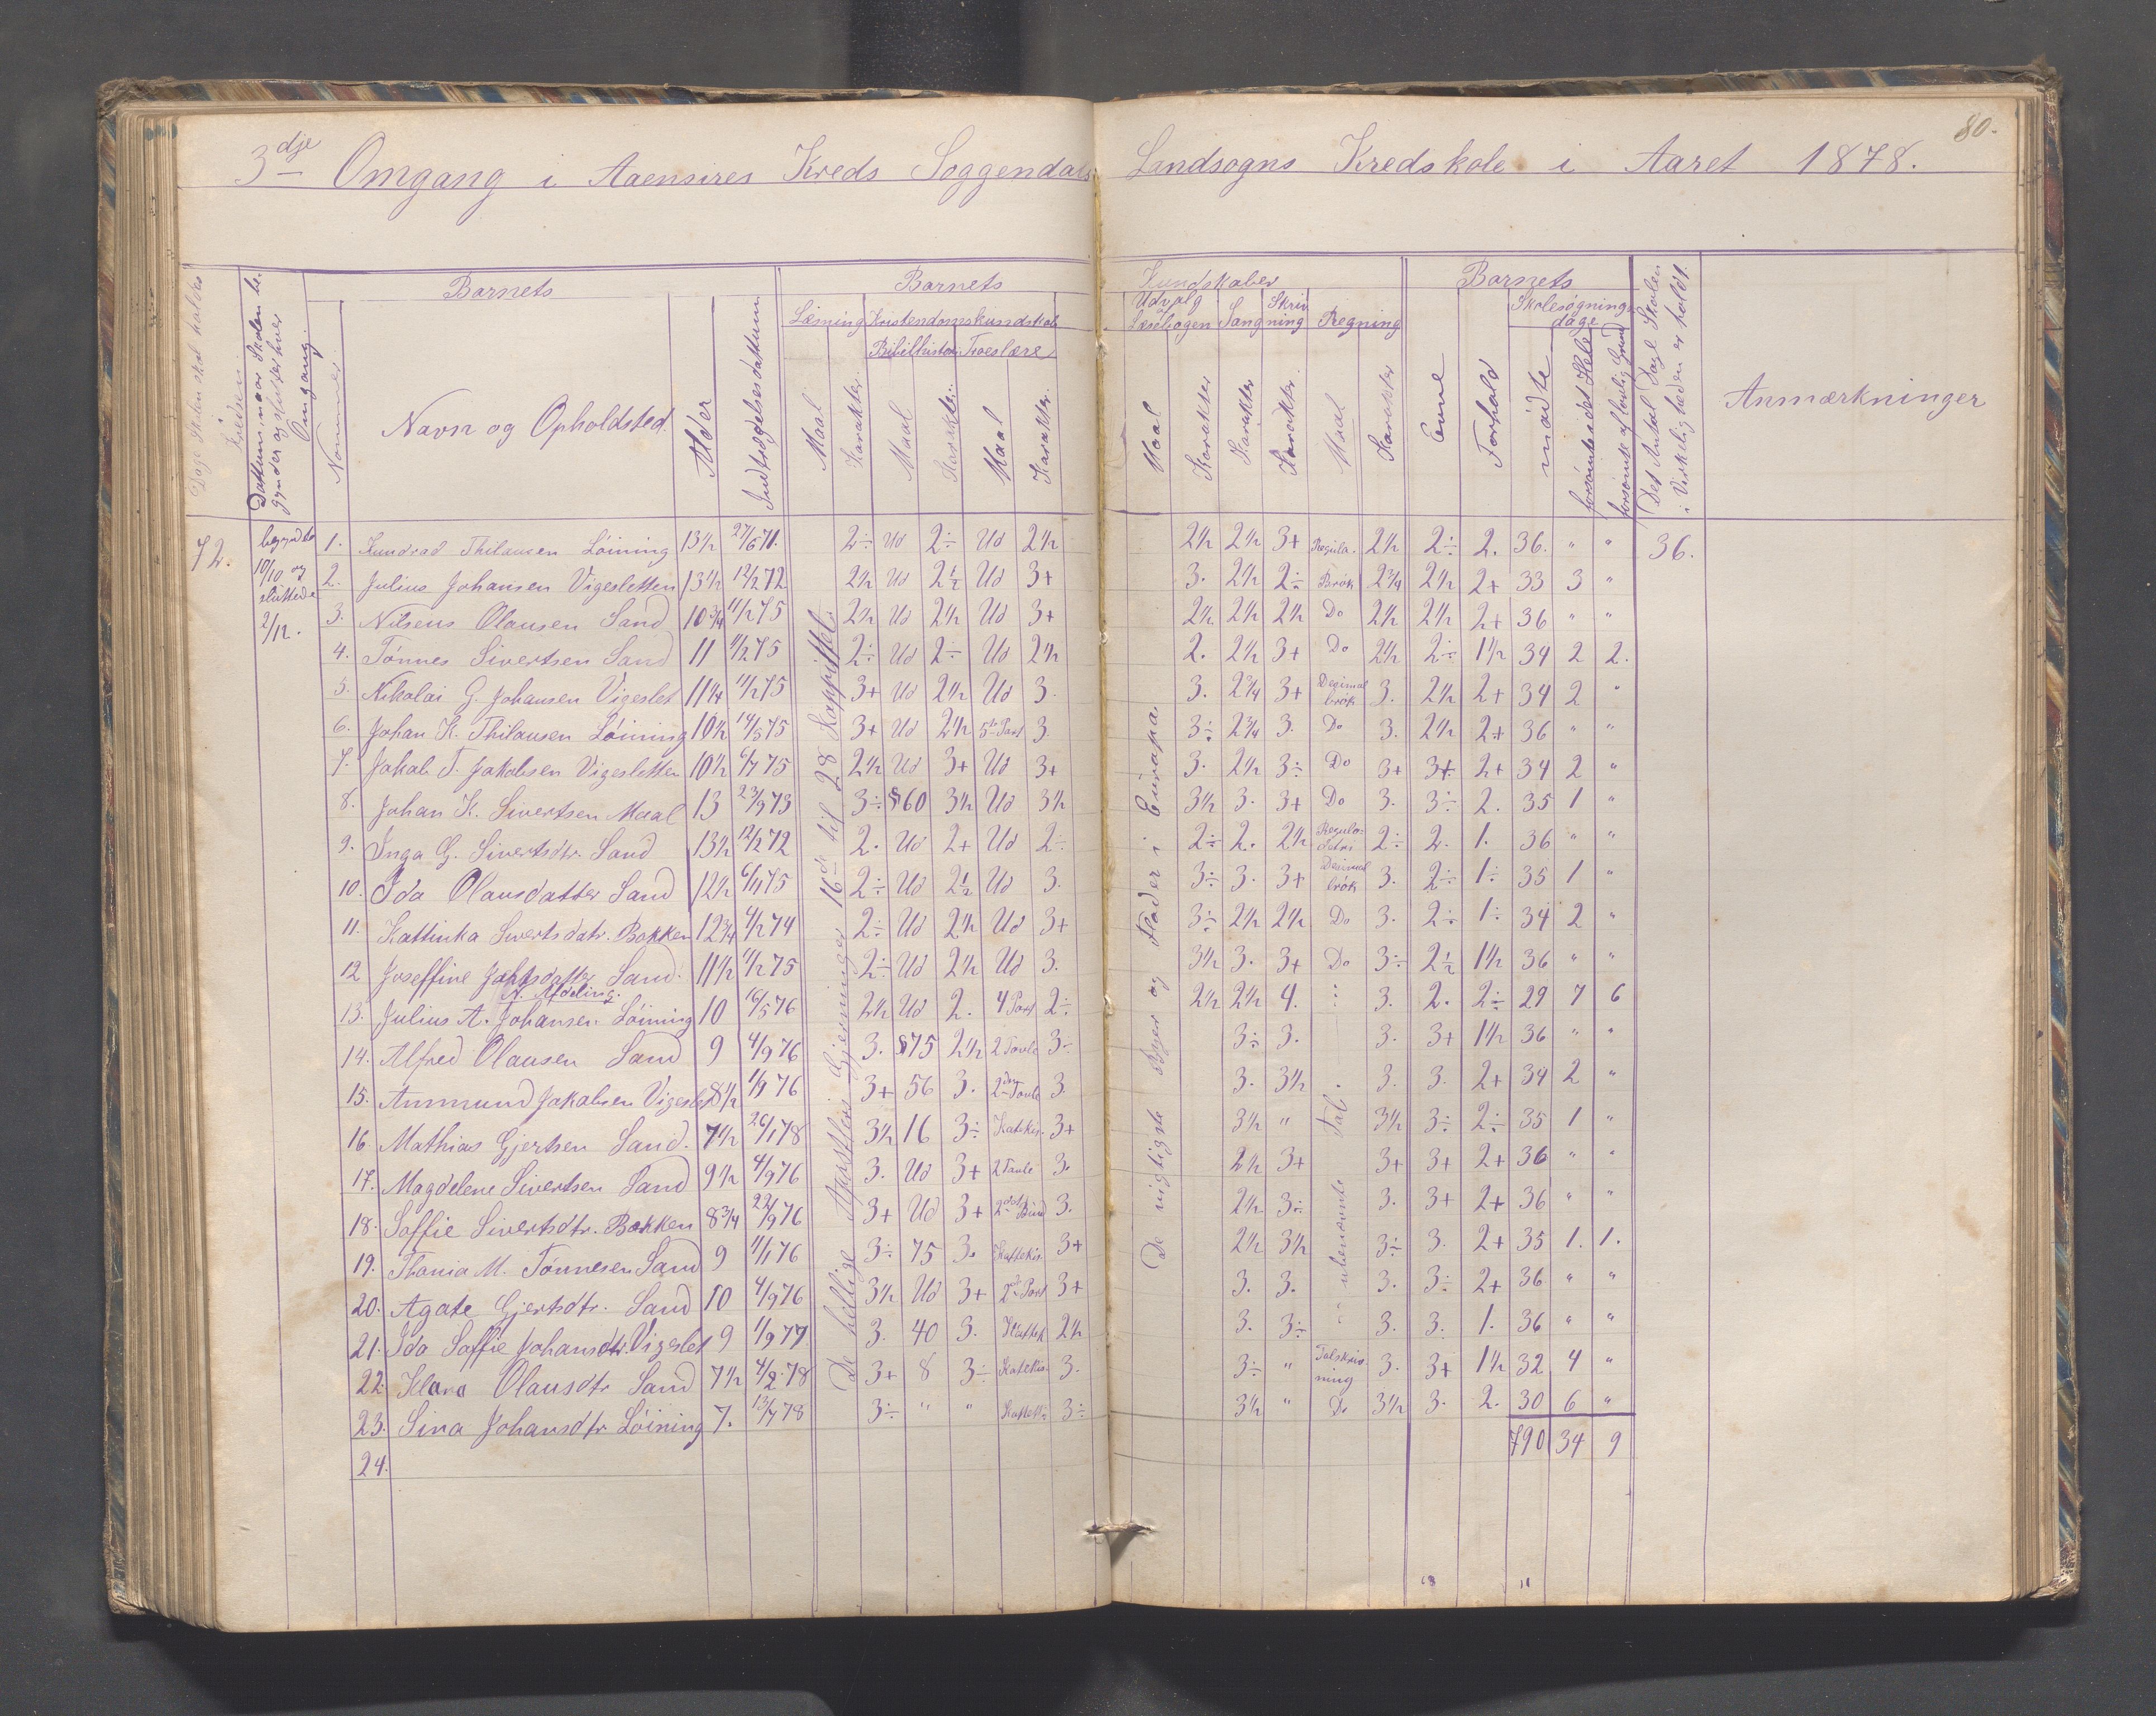 80.
3dje Omgang i Aaensires Kreds Soggendals Landsogns Kredskole i Aaret 1878.
Dage Skolen skal holdes i Kredsen
Dattum, naar Skolen begynder og slutter hver Omgang.
Barnets
Nommer
Navn og Opholdsted.
Alder
Indtrædelsesdattum
Barnets Kundskaber
Læsning Kristendomskundskab
Bibelhistorie Troeslære
Maal Karakter. Maal Karakter. Maal Karakter.
Udvalg af Læsebogen Sang Skrivning Regning
Maal Karakter Karakter Karakter. Maal Karakter
Barnets
Evne Forhold
Skolesøgningsdage
mødte forsømte i det Hele forsømte af lovlig Grund
Det Antal Dage Skolen i Virkeligheden er holdt.
Anmærkninger
72. begyndte 10/10 og sluttede 2/12.
De hellige Apostlers Gjerninger 16de til 28 Kappittel.
De vigtigste Byer og Floder i Europa.
1. Kundrad Thilausen Løining 13½ 27/6 71. 2÷ Ud 2÷ Ud 2½ 2½ 2½ 3+ Regula. 2½ 2÷ 2. 36. " " 36.
2. Julius Johansen Vigesletten 13½ 12/2 72 2½ Ud 2½ Ud 3+ 3. 2½ 2÷ Brøk 2¾ 2½ 2+ 33 3 "
3. Nilseus Olausen Sand 10¾ 11/2 75 2½ Ud 2½ Ud 3+ 2½ 2½ 2½ Do 2½ 2½ 2+ 36 " "
4. Tønnes Sivertsen Sand 11 11/2 75 2÷ Ud 2÷ Ud 2½ 2. 2½ 3+ Do 2½ 2÷ 1½ 34 2 2.
5. Nikolai G. Johansen Vigeslet 11¼ 11/2 75 3+ Ud 2½ Ud 3. 3. 2¾ 3+ Decimalbrøk 3. 2½ 2+ 34 2 "
6. Johan K. Thilausen Løining 10½ 14/5 75 3+ Ud 2½ 5te Part 3. 3÷ 2¾ 3. Do 3. 2½ 2+ 36 " "
7. Jakob T. Jakobsen Vigesletten 10½ 6/7 75 2½ Ud 3+ Ud 3+ 3. 2½ 3÷ Do 3+ 3+ 2+ 34 2 "
8. Johan K. Sivertsen Maal 13 23/9 73 3÷ §60 3½ Ud 3½ 3½ 3. 3+ Do 3. 3÷ 2. 35 1 "
9. Inga G. Sivertsdtr. Sand 13½ 12/2 72 2. Ud 2+ Ud 2÷ 2÷ 2. 2½ Regula-Detri 2÷ 2. 1. 36 " "
10. Ida Olausdatter Sand 12½ 6/11 75 2÷ Ud 2½ Ud 3. 3÷ 3. 3+ Decimalbrøk 3. 2÷ 1÷ 35 1 "
11. Kattinka Sivertsdatr. Bakken 12¾ 4/2 74 2÷ Ud 2½ Ud 3+ 3÷ 2½ 2½ Do 3. 2÷ 1÷ 34 2 "
12 Joseffine Sand. 11½ 11/2 75 2÷ Ud 2½ Ud 3. 3½ 3. 3+ Do 3÷ 2½ 1½ 36 " "
N. Afdeling.
13. Julius A. Johansen. Løining 10 16/5 76 2½ Ud 2. 4 Part 2÷ 2½ 2½ 4. 3. 2. 2÷ 29 7 6
14. Alfred Olausen Sand 9 4/9 76 3. §75 2½ 2 Tavle 3÷ 3÷ 3. 3. 3+ 1½ 36 " "
15. Ammund Jakobsen Vigeslet 8½ 1/9 76 3+ 56 3. 2den Tavle 3. 3. 3½ 3. 3. 2+ 34 2 "
16 Mathias Gjertsen Sand. 7½ 26/1 78 3½ 16 3÷ Katekis. 3+ 3½ " 3½ 3÷ 2÷ 35 1 "
17. Magdelene Sivertsen Sand 9½ 4/9 76 3. Ud 3+ 2 Tavle 3. 2½ 3+ 3+ 3+ 2+ 36 " "
18. Saffie Sivertsdtr. Bakken 8¾ 22/9 76 3+ Ud 3+ 2det Bud 3. 2½ 3÷ 3. 3+ 2+ 36 " "
19. Thania M. Tønnesen Sand 9 11/1 76 3÷ 75 3. Kattekis. 3+ 2½ 3½ 3÷ 3. 2+ 35 1. 1.
20. Agate Gjertsdtr. Sand 10 4/9 76 3½ Ud 3+ 2de Part 3+ 3. 3. 3. 3÷ 2+ 36 " "
21. Ida Saffie Johansdtr. Vigeslet 9 1/9 77 3. 40 3. Kattek 2½ 3. 3÷ 3. 3. 1. 36 " "
22. Klara Olausdtr Sand 7½ 4/2 78 3+ 8 3÷ Katekis. 3. 3÷ " Talskrivning 3. 3+ 1½ 32 4 "
23. Sina Johansdtr Løining 7. 13/7 78 3÷ " " Kattek 3÷ 3½ " Do 3½ 3. 2. 30 6 "
ubenævnte Tal
24.
790 34 9